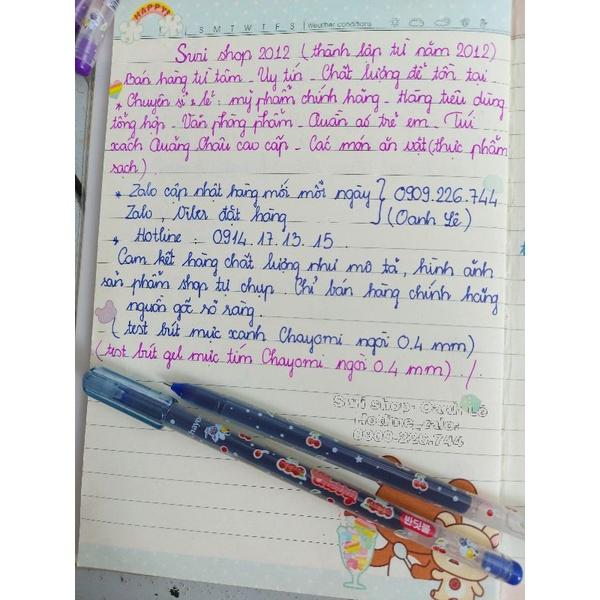 HAPPY!
S M T W T F S | Weather conditions
Suri shop 2012 (thành lập từ năm 2012)
Bán hàng từ tâm - Uy tín - Chất lượng để tồn tại
* Chuyên sỉ & lẻ: mỹ phẩm chính hãng - Hàng tiêu dùng
tổng hợp - Văn phòng phẩm - Quần áo trẻ em - Túi
xách Quảng Châu cao cấp - Các món ăn vặt (thực phẩm
sạch).
* Zalo cập nhật hàng mới mỗi ngày } 0909.226.744
Zalo, Viber đặt hàng (Oanh Lê)
* Hotline: 0914.17.13.15.
Cam kết hàng chất lượng như mô tả, hình ảnh
sản phẩm shop tự chụp. Chỉ bán hàng chính hãng
nguồn gốc rõ ràng.
(test bút mực xanh Chayomi ngòi 0.4 mm)
(test bút gel mực tím Chayomi ngòi 0.4 mm) ./.
Suri shop- Oanh Lê
Hotline_zalo-
0909.226.744
반딧불